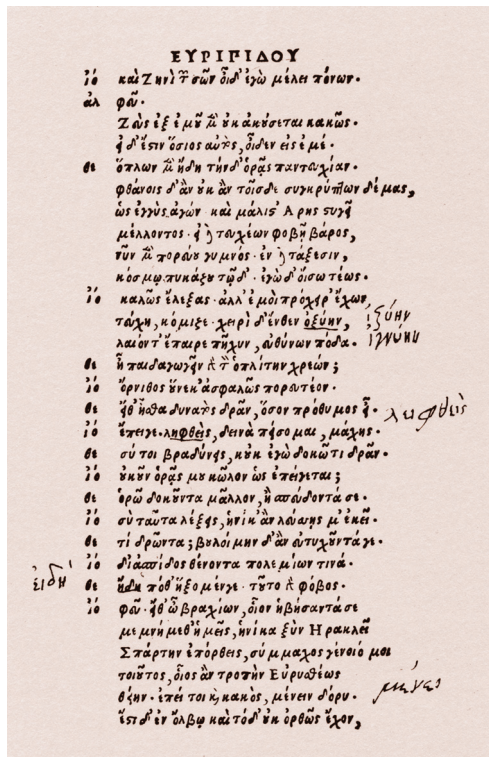 ΕΥΡΙΠΙΔΟΥ
ἰό καὶ Ζηνὶ τῶν σῶν οἶδ' ἐγὼ μέλει πόνων.
αλ φεῦ.
Ζεὺς ἐξ ἐμοῦ μὲν οὐκ ἀκούσεται κακῶς.
εἰ δ' ἔστιν ὅσιος αὐτὸς, οἶδεν εἰς ἐμέ.
θε ὅπλων μὲν ἤδη τήνδ' ὁρᾷς παντευχίαν.
φθάνοις δ' ἂν οὐκ ἂν τοῖσδε συγκρύπτων δέμας,
ὡς ἐγγὺς ἀγών καὶ μάλιστ' Ἄρης στυγεῖ
μέλλοντος. εἰ δὲ τευχέων φοβῇ βάρος,
νῦν μὲν πορεύου γυμνός. ἐν δὲ τάξεσιν,
κόσμῳ πυκάζου τῷδ'. ἐγὼ δ' οἴσω τέως.
ἰό καλῶς ἔλεξας. ἀλλ' ἐμοὶ πρόχειρ' ἔχων
τεύχη, κόμιζε. χειρὶ δ' ἔνθες ὀξύην,
ἰξύην
λαιόν τ' ἔπαιρε πῆχυν, εὐθύνων πόδα.
ἰγνύην
θε ἦ παιδαγωγεῖν γὰρ τὸν ὁπλίτην χρεών;
ἰό ὄρνιθος οὕνεκ' ἀσφαλῶς πορευτέον.
θε εἴθ' ἦσθα δυνατὸς δρᾶν, ὅσον πρόθυμος εἶ.
ἰό ἔπειγε. ληφθεὶς, δεινὰ πείσομαι, μάχης.
λειφθεὶς
θε σύ τοι βραδύνεις, κοὐκ ἐγὼ δοκῶ τι δρᾶν.
ἰό οὐκοῦν ὁρᾷς μου κῶλον ὡς ἐπείγεται;
θε ὁρῶ δοκοῦντα μᾶλλον, ἢ σπεύδοντά σε.
ἰό σὺ ταῦτα λέξεις, ἡνίκ' ἂν λεύσῃς μ' ἐκεῖ.
θε τί δρῶντα; βουλοίμην δ' ἂν εὐτυχοῦντά γε.
ἰό δι' ἀσπίδος θένοντα πολεμίων τινά.
θε ἤδη πόθ' ἥξομέν γε. τοῦτο γὰρ φόβος.
εἰ δή
ἰό φεῦ. εἴθ' ὦ βραχίων, οἷον ἡβήσαντά σε
μεμνήμεθ' ἡμεῖς, ἡνίκα ξὺν Ἡρακλεῖ
Σπάρτην ἐπόρθεις, σύμμαχος γένοιό μοι
τοιοῦτος, οἷος ἂν τροπὴν Εὐρυσθέως
θείην. ἐπεί τοι καὶ κακὸς, μένειν δόρυ.
ἔστι δ' ἐν ὄλβῳ καὶ τόδ' οὐκ ὀρθῶς ἔχον,